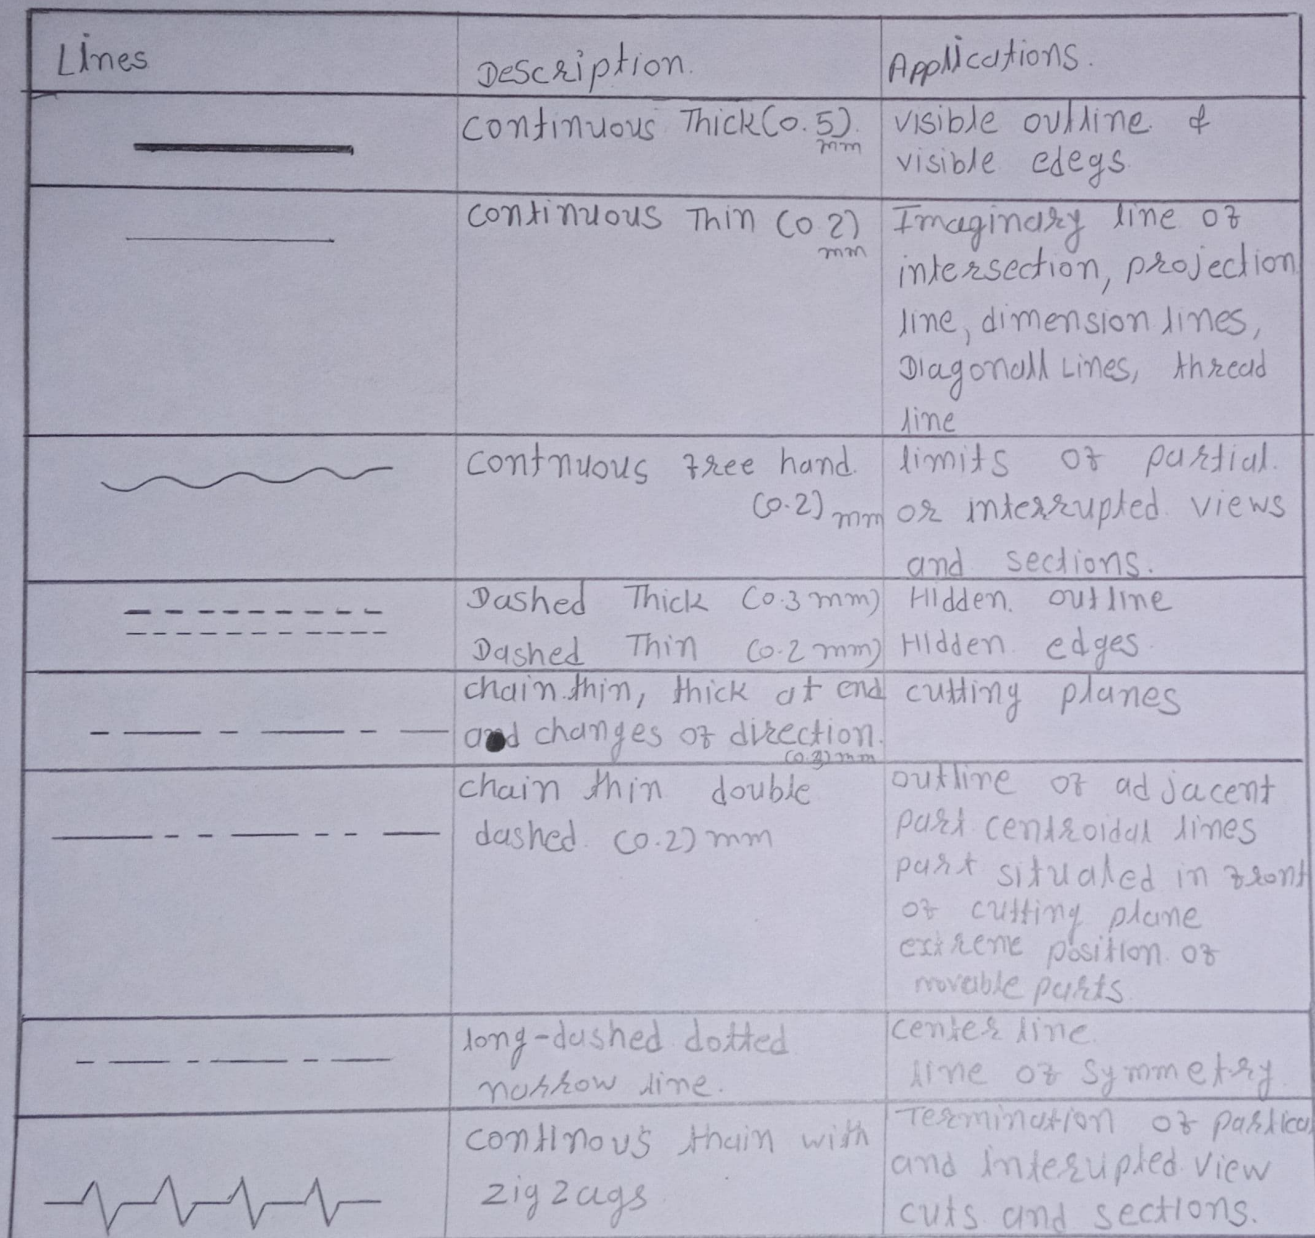 Lines
Description.
Applications.
continuous Thick (0.5).
mm
visible outline &
visible edegs
continuous Thin (0 2)
mm
Imaginary line of
intersection, projection
line, dimension lines,
Diagonall Lines, thread
line
contnuous free hand.
(0.2) mm
limits of partial.
or interrupted. views
and sections.
Dashed Thick (0.3 mm)
Dashed Thin (0.2 mm)
Hidden. outline
Hidden edges.
chain.thin, thick at end
and changes of direction.
mm
cutting planes
chain thin double
dashed. (0.2) mm
outline of adjacent
part centroidal lines
part situated in front
of cutting plane
extreme position of
movable parts
long-dashed dotted
narrow line.
center line.
line of symmetry
continous thain with
zigzags
Termination of partical
and interupted view
cuts and sections.